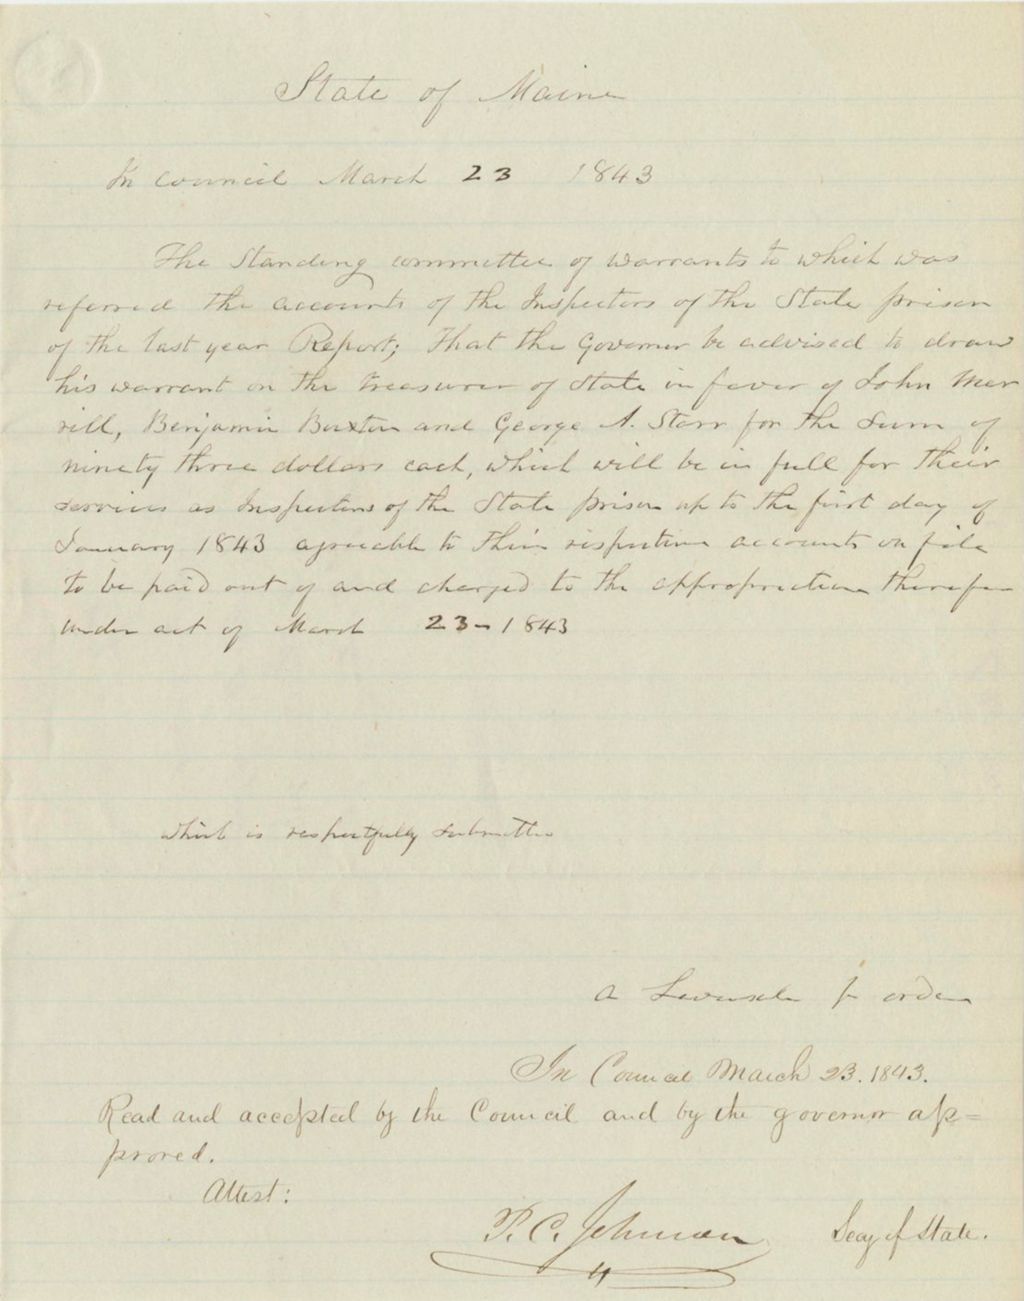 State of Maine
In council March 23 1843
The Standing committee of warrants to which was
referred the accounts of the Inspectors of the State prison
of the last year Report; That the Governor be advised to draw
his warrant on the treasurer of State in favor of John Mer
rill, Benjamin Buxton and George A. Starr for the sum of
ninety three dollars each, which will be in full for their
services as Inspectors of the State prison up to the first day of
January 1843 agreeable to their respective accounts on file
to be paid out of and charged to the appropriation therefor
under act of March 23-1843
which is respectfully submitted
A pr order
In Council March 23. 1843.
Read and accepted by the Council and by the governor ap=
proved.
Attest:
P. C. Johnson Secy of State.